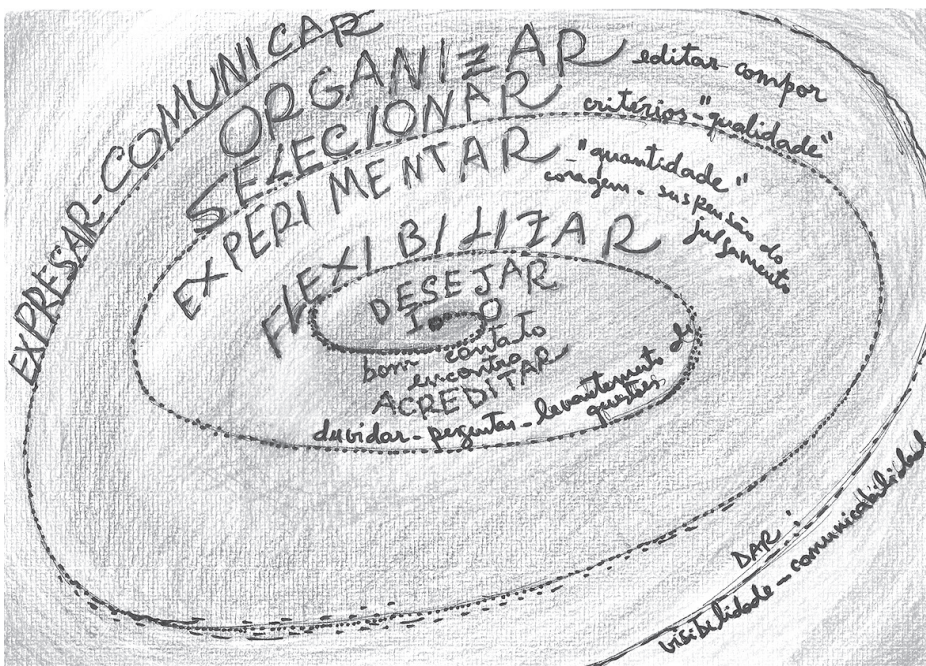 EXPRESAR-COMUNICAR
ORGANIZAR editar compor
SELECIONAR critérios-"qualidade"
EXPERIMENTAR - "quantidade"
coragem - suspensão do
julgamento
FLEXIBILIZAR
DESEJAR
I O
bom contato
encontro
ACREDITAR
duvidar - perguntas - levantamento de
questões
DAR:
visibilidade - comunicabilidad